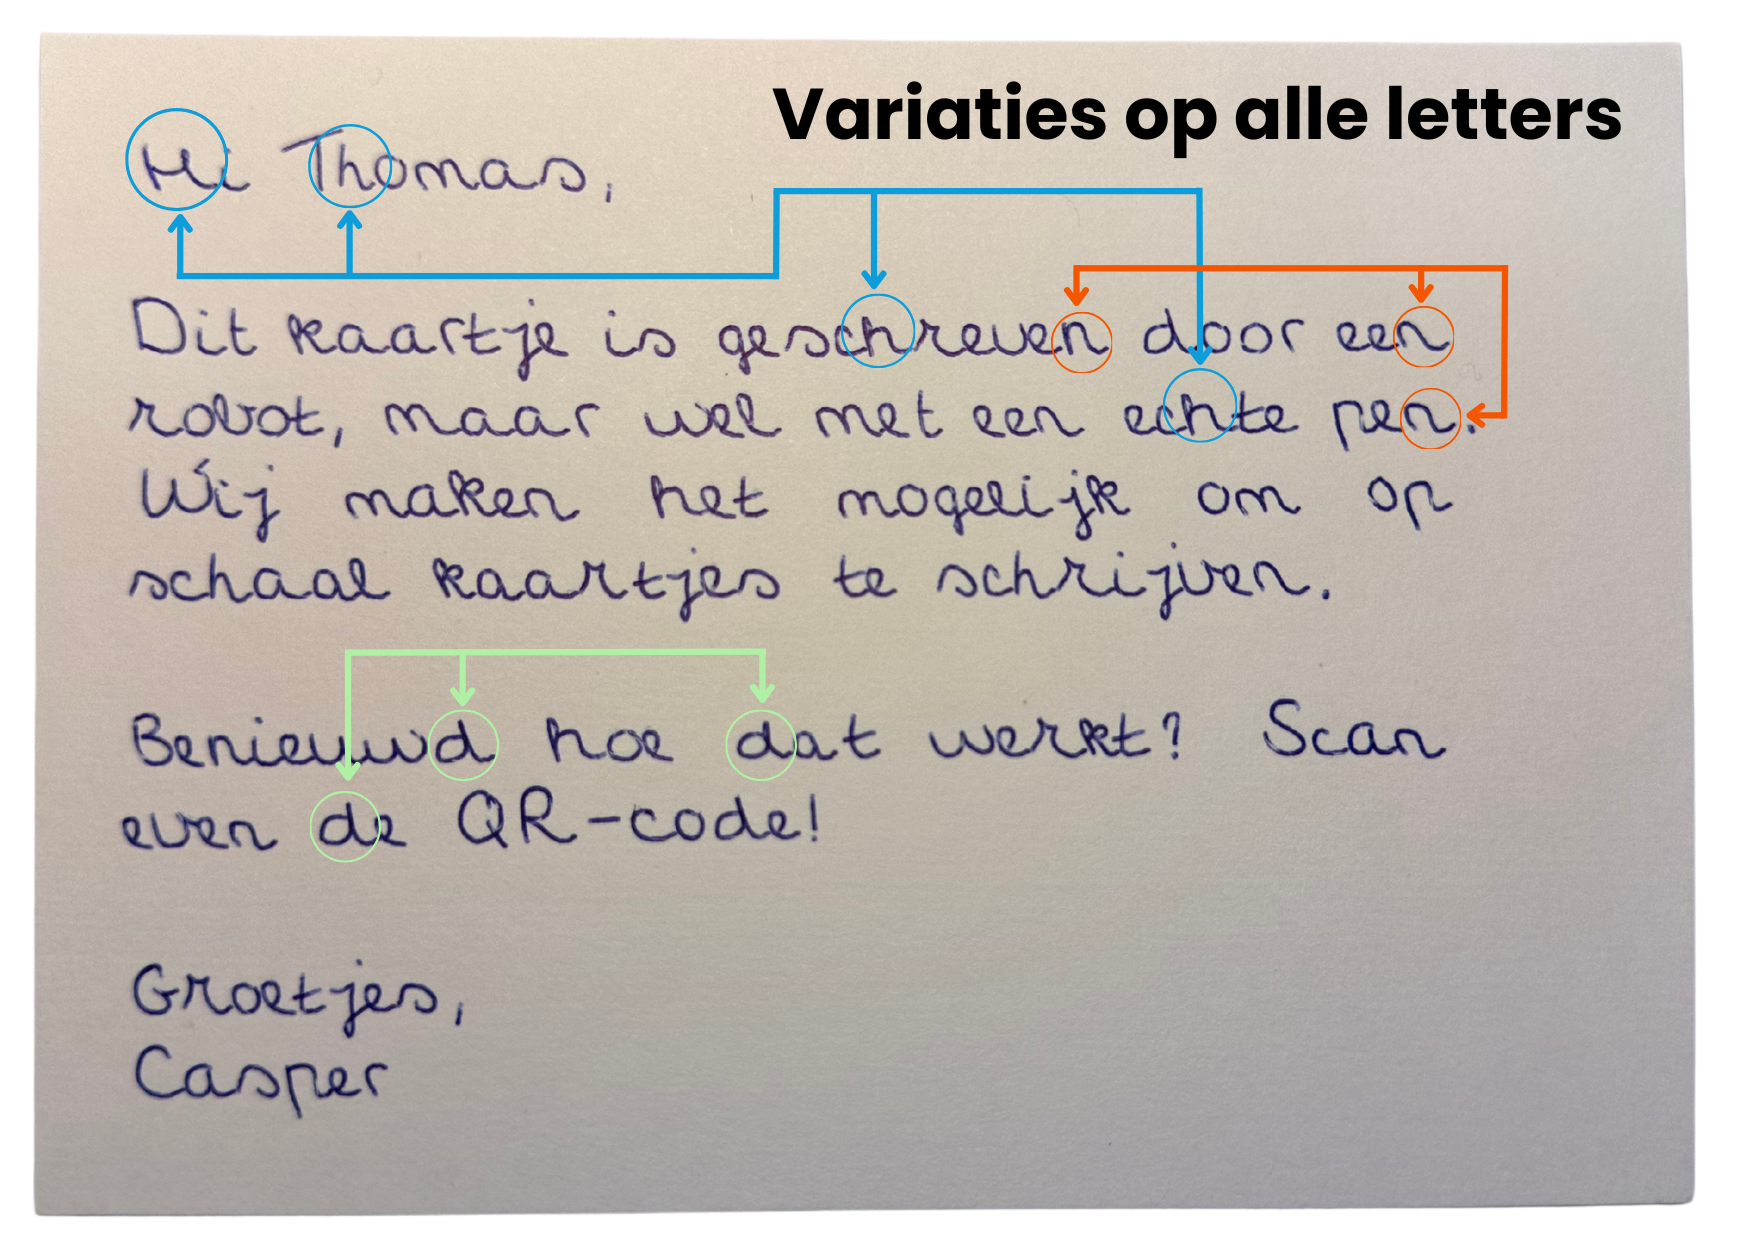 Variaties op alle letters
Hi Thomas,
Dit kaartje is geschreven door een
robot, maar wel met een echte pen.
Wij maken het mogelijk om op
schaal kaartjes te schrijven.
Benieuwd hoe dat werkt? Scan
even de QR-code!
Groetjes,
Casper